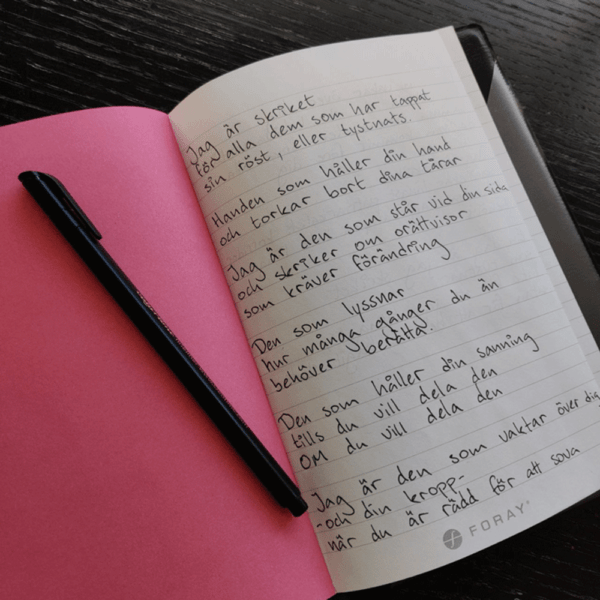 Jag är skriket
för alla dem som har tappat
sin röst, eller tystnats.
Handen som håller din hand
och torkar bort dina tårar
Jag är den som står vid din sida
och skriker om orättvisor
som kräver förändring
Den som lyssnar
hur många gånger du än
behöver berätta.
Den som håller din sanning
tills du vill dela den
OM du vill dela den
Jag är den som vaktar över dig
-och din kropp-
när du är rädd för att sova
FORAY